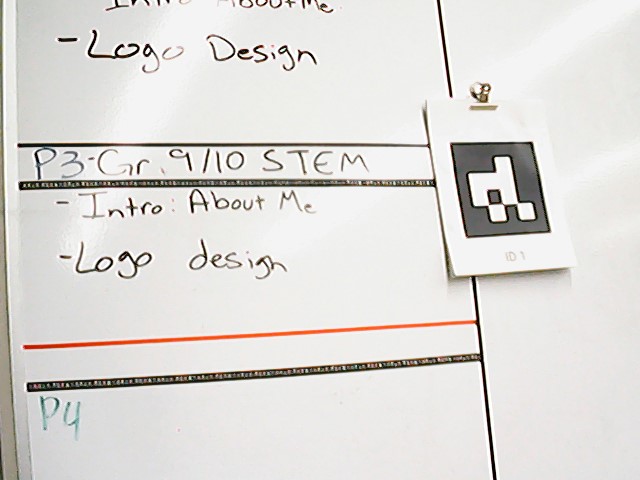 Intro About Me
- Logo Design
P3-Gr. 9/10 STEM
- Intro: About Me
- Logo design
ID 1
P4